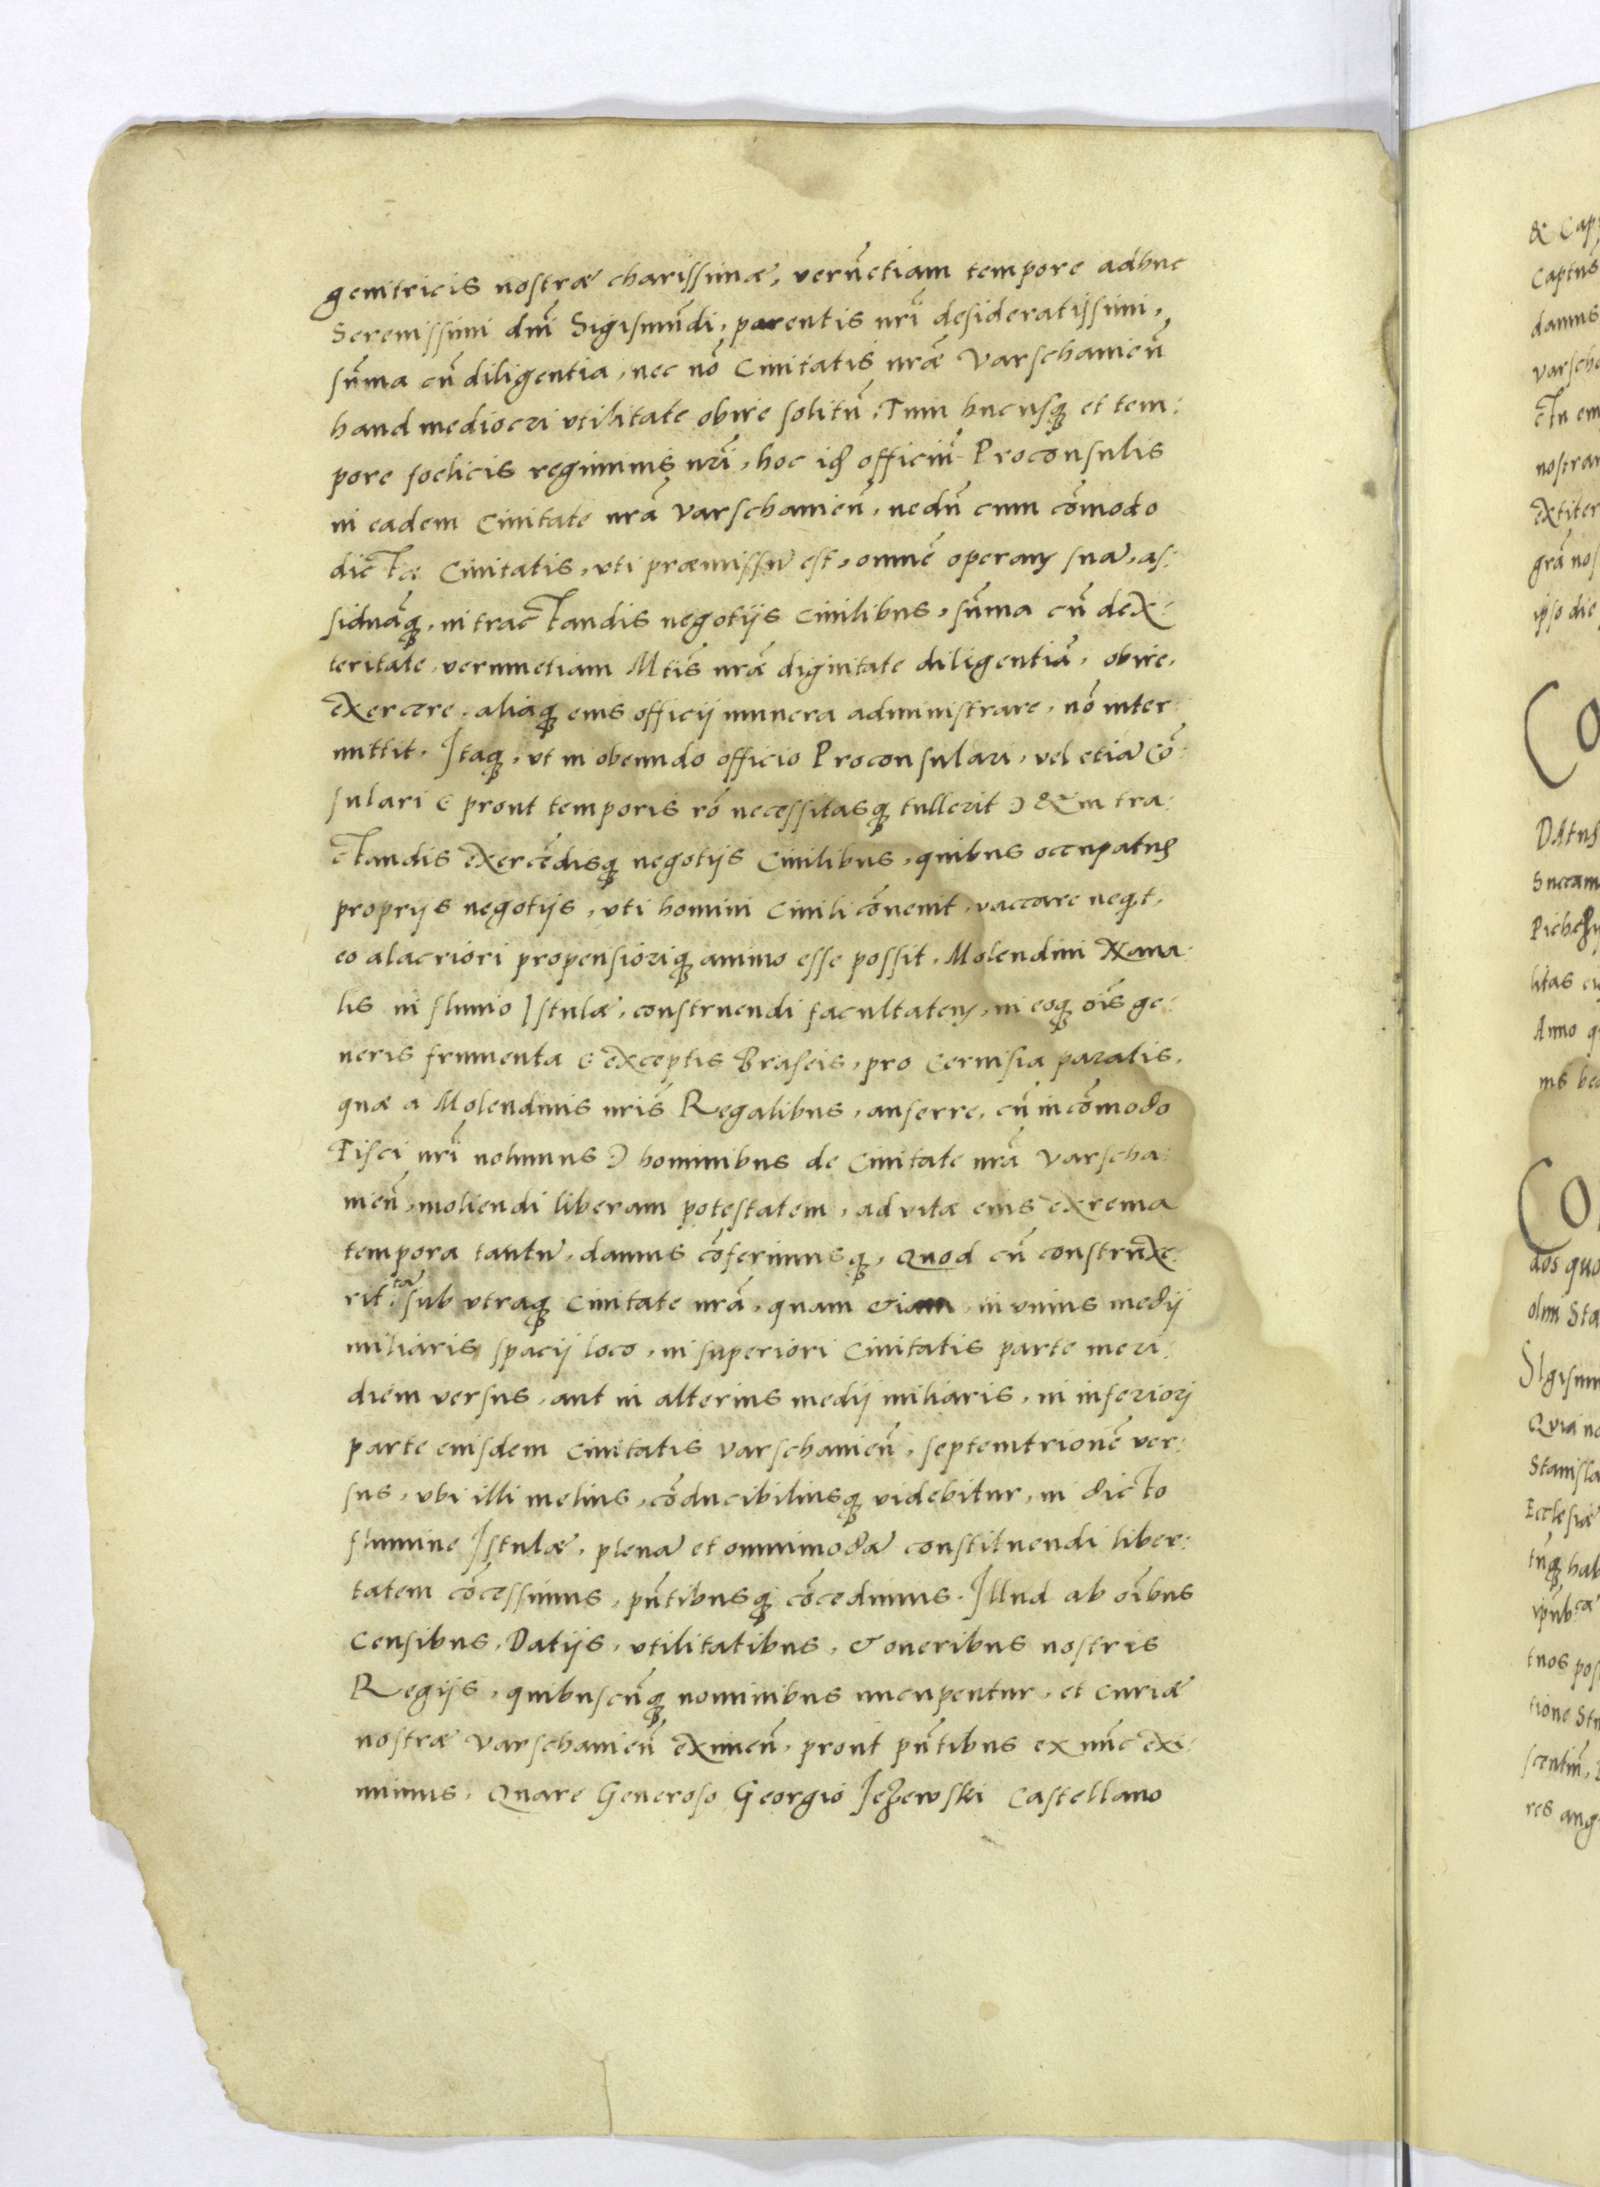 genitricis nostræ charissimæ, verũetiam tempore adhuc
Serenissimi dñi Sigismũdi, parentis nr̃i desideratissimi,
sũma cũ diligentia, nec nõ Ciuitatis nr̃æ Varschauieñ
haud mediocri vtilitate obire solitũ, Tum hucusq; et tem:
pore foelicis regiminis nr̃i, hoc id officiũ Proconsulis
in eadem Ciuitate nr̃a Varschauieñ, nedũ cum cõmodo
dictæ Ciuitatis, vti præmissũ est, omnẽ operam suã, as:
siduãq;, in tractandis negotijs Ciuilibus, sũma cũ dex:
teritate, verumetiam Mtis nr̃æ dignitate diligentiã, obire,
exercere, aliaq; eius officij munera administrare, nõ inter
mittit. Itaq;, vt in obeundo officio Proconsulari, vel etiã Cõ:
sulari ( prout temporis rõ necessitasq; tullerit ) & in tra:
ctandis exercẽdisq; negotijs Ciuilibus, quibus occupatus
proprijs negotijs, vti homini Ciuili cõuenit, vaccare neq̃t,
eo alacriori propensioriq; animo esse possit, Molendini Nana:
lis in fluuio Istulæ, construendi facultatem, in eoq; oĩs ge:
neris frumenta ( exceptis Braseis, pro Ceruisia paratis,
quæ a Molendinis nr̃is Regalibus, auferre, cũ incõmodo
Fisci nr̃i nolumus ) hominibus de Ciuitate nr̃a Varscha:
uieñ, moliendi liberam potestatem, ad vitæ eius exrema
tempora tantũ, damus cõferimusq;, Quod cũ construxe:
rit, tã sub vtraq; Ciuitate nr̃a, quam etiam, in vnius medij
miliaris spacij loco, in superiori Ciuitatis parte meri:
diem versus, aut in alterius medij miliaris, in inferiori
parte eiusdem Ciuitatis Varschauieñ, septemtrionẽ ver:
sus, vbi illi melius, cõducibiliusq; videbitur, in dicto
flumine Istulæ, plenã et omnimodã constituendi liber:
tatem cõcessimus, pñtibusq; cõcedimus. Illud ab oĩbus
Censibus, Datijs, vtilitatibus, & oneribus nostris
Regijs, quibuscũq; nominibus nucupentur, et Curiæ
nostræ Varschauieñ eximeñ, prout pñtibus ex nũc exi:
mimus. Quare Generoso Georgio Jeżewski Castellano
& Cap
Captus
damus
varscha
nostra
extiter
ipso die
CO
Datus
Anno
CO
dos quo
olim Sta
Sigism
Quia no
Stanisla
Ecclesiæ
tũq; hab
tuos pos
tione
res